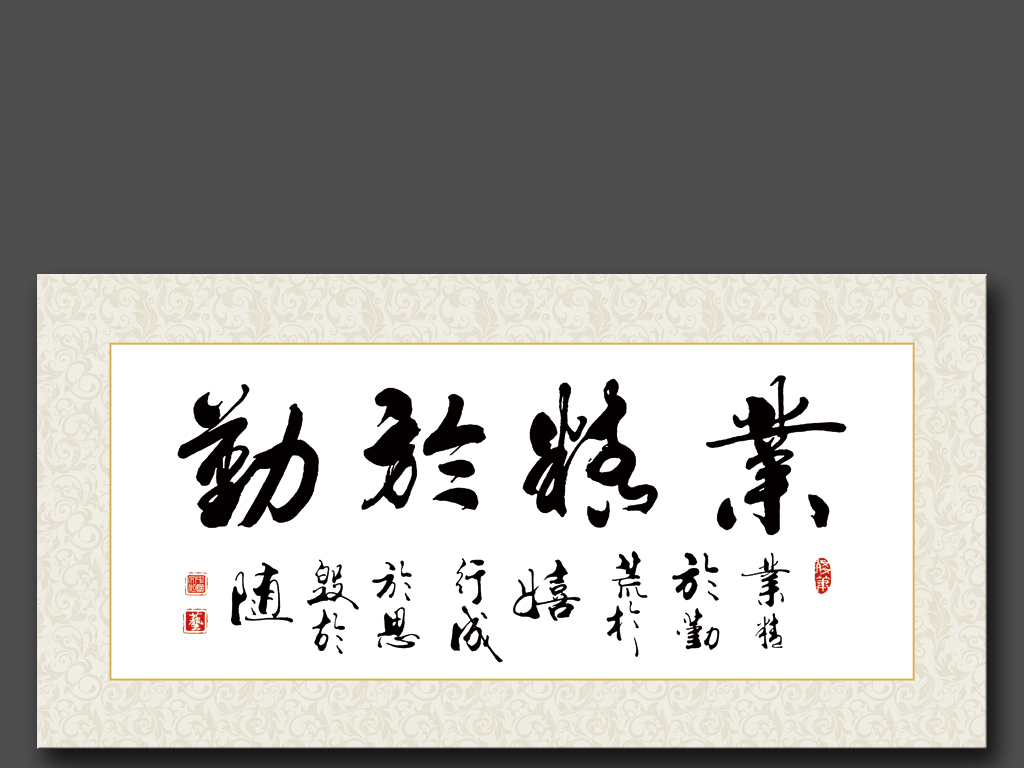 業精於勤
業精
於勤
荒於
嬉
行成
於思
毀於
随
藝